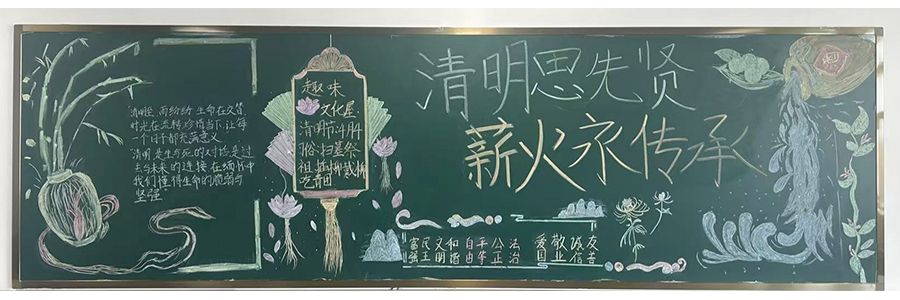 清明思先贤
薪火永传承
趣味
文化屋
清明节:4月4
俗:扫墓祭
祖 插柳戴柳
吃青团
清明至 雨纷纷 生命在久
时光在流转 珍惜当下,让每
个日子都充满意义
清明 是生与死的对话,是过
去与未来的连接 在缅怀中
我们懂得生命的脆弱与
坚强
富民文和自平公法 爱敬诚友
强主明谐由等正治 国业信善